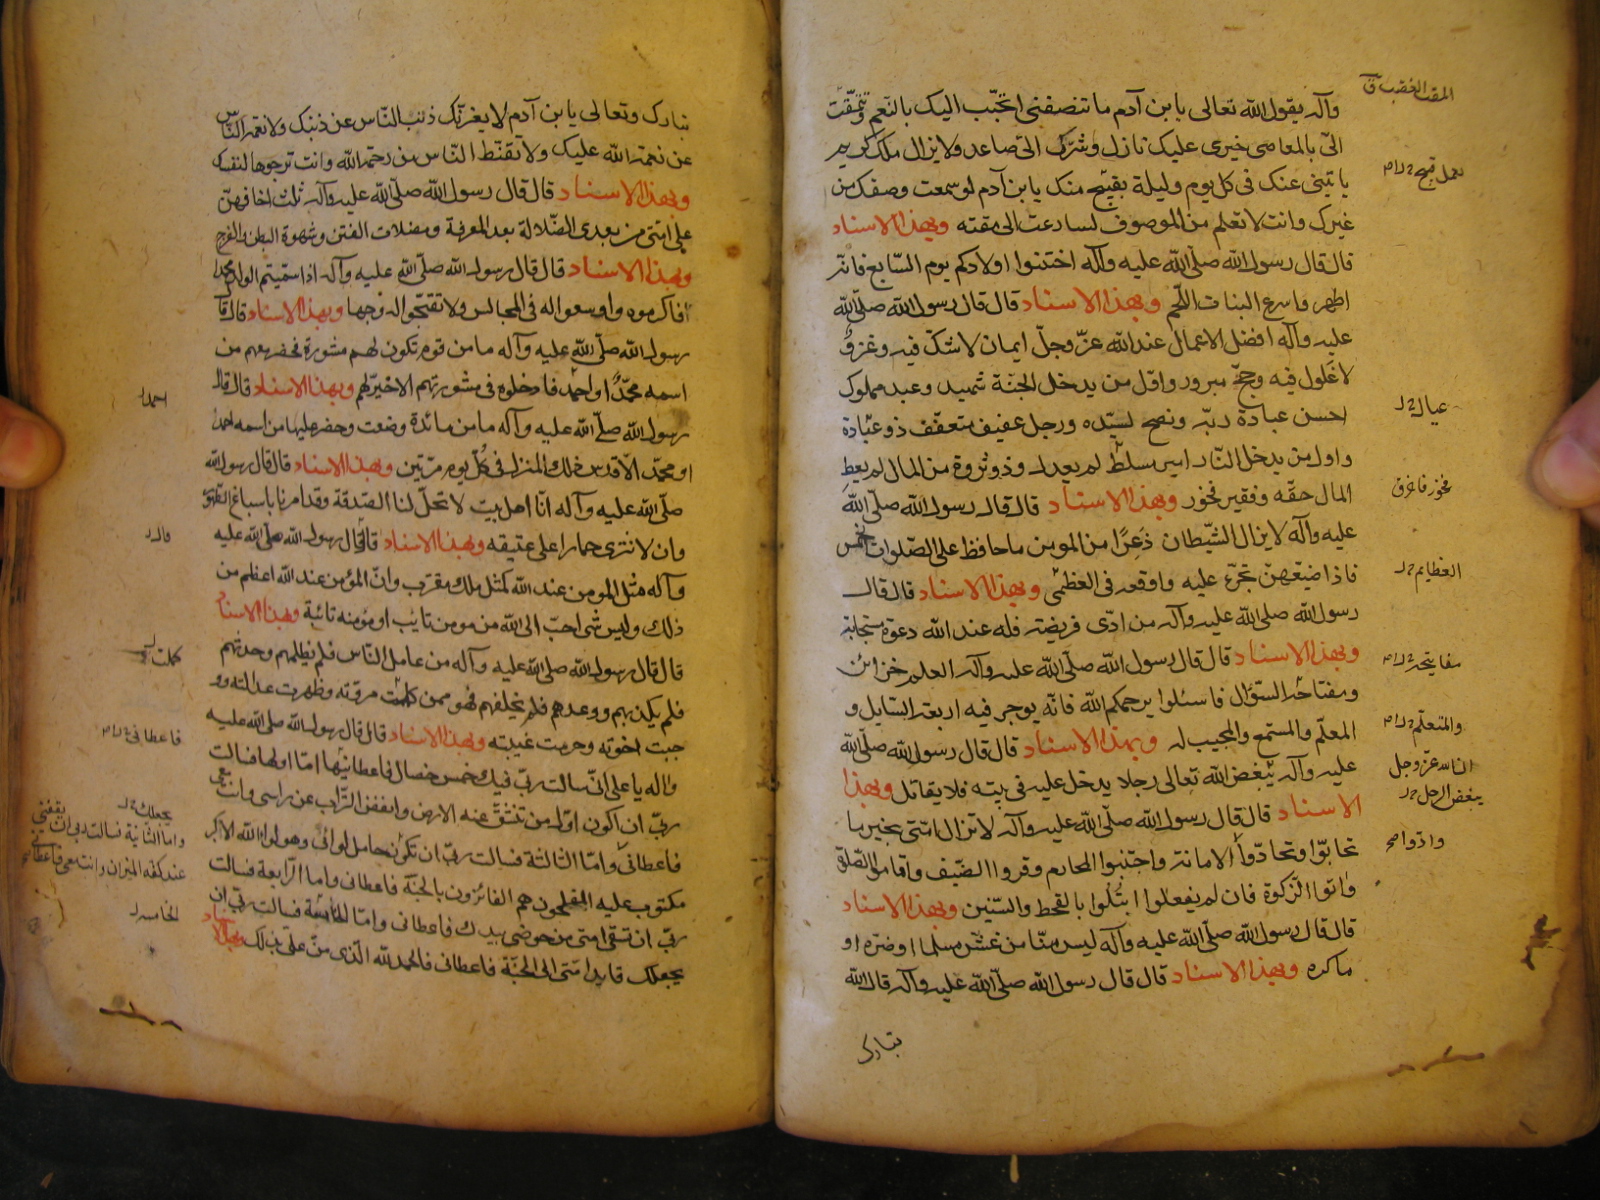 وآله يقول الله تعالى يا بن آدم ما تنصفنى اتحبّب اليك بالنّعم وتتمقّت
الىّ بالمعاصى خيرى عليك نازل وشرّك الىّ صاعد ولا يزال ملك كريم
ياتينى عنك فى كل يوم وليلة بقبيح منك يا بن آدم لو سمعت وصفك من
غيرك وانت لا تعلم من الموصوف لسارعت الى مقته وبهذا الاسناد
قال قال رسول الله صلّى الله عليه وآله اختنوا اولادكم يوم السّابع فانّه
اطهر واسرع لنبات اللّحم وبهذا الاسناد قال قال رسول الله صلّى الله
عليه وآله افضل الاعمال عند الله عزّ وجلّ ايمان لا شكّ فيه وغزوٌ
لا غلول فيه وحجّ مبرور واوّل من يدخل الجنّة شهيد وعبد مملوك
احسن عبادة ربّه ونصح لسيّده ورجل عفيف متعفّف ذو عبادة
واول من يدخل النّار امير مسلّط لم يعدل وذو ثروة من المال لم يعط
المال حقّه وفقير فخور وبهذا الاسناد قال قال رسول الله صلّى الله
عليه وآله لا يزال الشّيطان ذعرًا من المومن ما حافظ على الصّلوات الخمس
فاذا ضيّعهنّ تجرّء عليه واوقعه فى العظمى وبهذا الاسناد قال قال
رسول الله صلى الله عليه وآله من ادّى فريضته فله عند الله دعوة مستجابة
وبهذا الاسناد قال قال رسول الله صلّى الله عليه وآله العلم خزائن
ومفتاحه السّؤال فاسئلوا يرحمكم الله فانّه يوجر فيه اربعة السّايل و
المعلّم والمستمع والمجيب له وبهذا الاسناد قال قال رسول الله صلّى الله
عليه وآله يبغض الله تعالى رجلا يدخل عليه فى بيته فلا يقاتل وبهذا
الاسناد قال قال رسول الله صلّى الله عليه وآله لا تزال امّتى بخير ما
تحابّوا وتهادّوا الامانة واجتنبوا المحارم وقروا الضّيف واقاموا الصّلوة
واتوا الزّكوة فان لم يفعلوا ابتُلوا بالقحط والسّنين وبهذا الاسناد
قال قال رسول الله صلّى الله عليه وآله ليس منّا من غشّ مسلما او ضرّه او
ماكره وبهذا الاسناد قال قال رسول الله صلّى الله عليه وآله قال الله
تبارك
عيال
العظايم
والمتعلّم
ان الله عزّ وجل
يبغض الرجل
تبارك وتعالى يا بن آدم لا يغرّنّك ذنب النّاس عن ذنبك ولا نعمة النّاس
عن نعمة الله عليك ولا تقنّط النّاس من رحمة الله وانت ترجوها لنفسك
وبهذا الاسناد قال قال رسول الله صلّى الله عليه وآله ثلث اخافهنّ
على امّتى من بعدى الضّلالة بعد المعرفة ومضلات الفتن وشهوة البطن والفرج
وبهذا الاسناد قال قال رسول الله صلّى الله عليه وآله اذا سمّيتم الولد محمدا
فاكرموه واوسعوا له فى المجالس ولا تقبّحوا له وجها وبهذا الاسناد قال قال
رسول الله صلّى الله عليه وآله ما من قوم تكون لهم مشورة فحضر معهم من
اسمه محمّدٌ او احمد فادخلوه فى مشورتهم الا خير لهم وبهذا الاسناد قال قال
رسول الله صلّى الله عليه وآله ما من مائدة وضعت وحضر عليها من اسمه احمد
او محمّد الّا قدس ذلك المنزل فى كلّ يوم مرّتين وبهذا الاسناد قال قال رسول الله
صلّى الله عليه وآله انّا اهل بيت لا تحلّ لنا الصّدقة وقد امرنا باسباغ الطّهور
وان لا ننزى حمارا على عتيقه وبهذا الاسناد قال قال رسول الله صلّى الله عليه
وآله مثل المومن عند الله كمثل ملك مقرّب وانّ المؤمن عند الله اعظم من
ذلك وليس شى احبّ الى الله من مومن تايب او مؤمنه تائبة وبهذا الاسناد
قال قال رسول الله صلى الله عليه وآله من عامل النّاس فلم يظلمهم وحدّثهم
فلم يكذبهم ووعدهم فلم يخلفهم فهو ممن كملت مروّته وظهرت عدالته وو
جبت اخوّته وحرمت غيبته وبهذا الاسناد قال قال رسول الله صلى الله عليه
وآله يا على انّى سالت ربّى فيك خمس خصال فاعطانيها امّا اولها فسالت
ربّى ان اكون اوّل من تنشقّ عنه الارض وانفض التّراب عن راسى وانت معى
فاعطانى وامّا الثالثة فسالت ربّى ان تكون حامل لوائى وهو لواء الله الاكبر
مكتوب عليه المفلحون هم الفائزون بالجنّة فاعطانى واما الرّابعة فسالت
ربّى ان تسقى امتى من حوضى بيدك فاعطانى وامّا الخامسة فسالت ربّى ان
يجعلك قايد امّتى الى الجنّة فاعطانى فالحمد لله الّذى من علىّ بذلك وبهذا الاسناد
احمد
قال
كملت
فاعطانى
يجعلك
وامّا الثانية فسالت ربى ان يقفنى
عند كفّه الميزان وانت معى فاعطانى
الخامسه